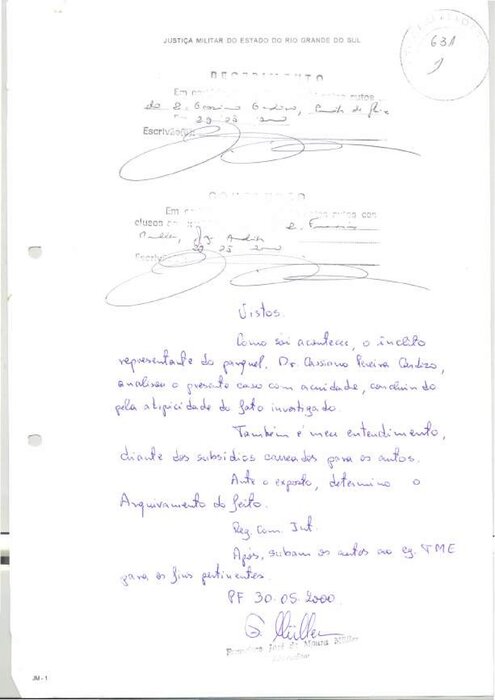 JUSTIÇA MILITAR DO ESTADO DO RIO GRANDE DO SUL
631
RECEBIMENTO
Em autos
do
Escrivão(ã)
Em autos con
clusos
Escrivão
Vistos.
Como sói acontecer, o ínclito
representante do parquet, Dr. Cassiano Pereira Cardozo,
analisou o presente caso com acuidade, concluindo
pela atipicidade do fato investigado.
Também é meu entendimento,
diante dos subsídios carreados para os autos.
Ante o exposto, determino o
Arquivamento do feito.
Reg. Com. Int.
Após, subam os autos ao eg. TME
para os fins pertinentes.
PF 30.05.2000.
Francisco José de Moura Müller
JM - 1